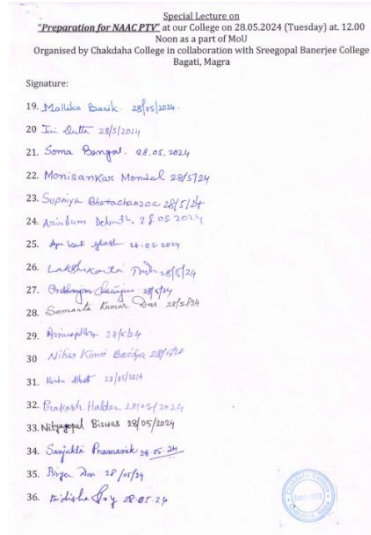 Special Lecture on
"Preparation for NAAC PTV" at our College on 28.05.2024 (Tuesday) at. 12.00
Noon as a part of MoU
Organised by Chakdaha College in collaboration with Sreegopal Banerjee College
Bagati, Magra
Signature:
19. Mallika Barik 28/05/2024.
20 Dutta 28/5/2024
21. Soma Bangal. 28.05.2024
22. Monisankar Mondal 28/5/24
23. Supriya Bhattacharjee 28/5/24
24. Arindam Debnath. 28.05.2024
25. 28.05.2024
26. Lakshikanta 28/5/24
27. 28/5/24
28. Samanta Kumar Das 28/5/24
29. 28/5/24
30 Nihar Kanti Baidya 28/5/24
31. 28/05/2024
32. Prakash Halder 28/05/2024
33. Nityagopal Biswas 28/05/2024
34. Sanjukta Pramanik 28.05.24
35. 28/05/24
36. Bidisha Roy 28.05.24